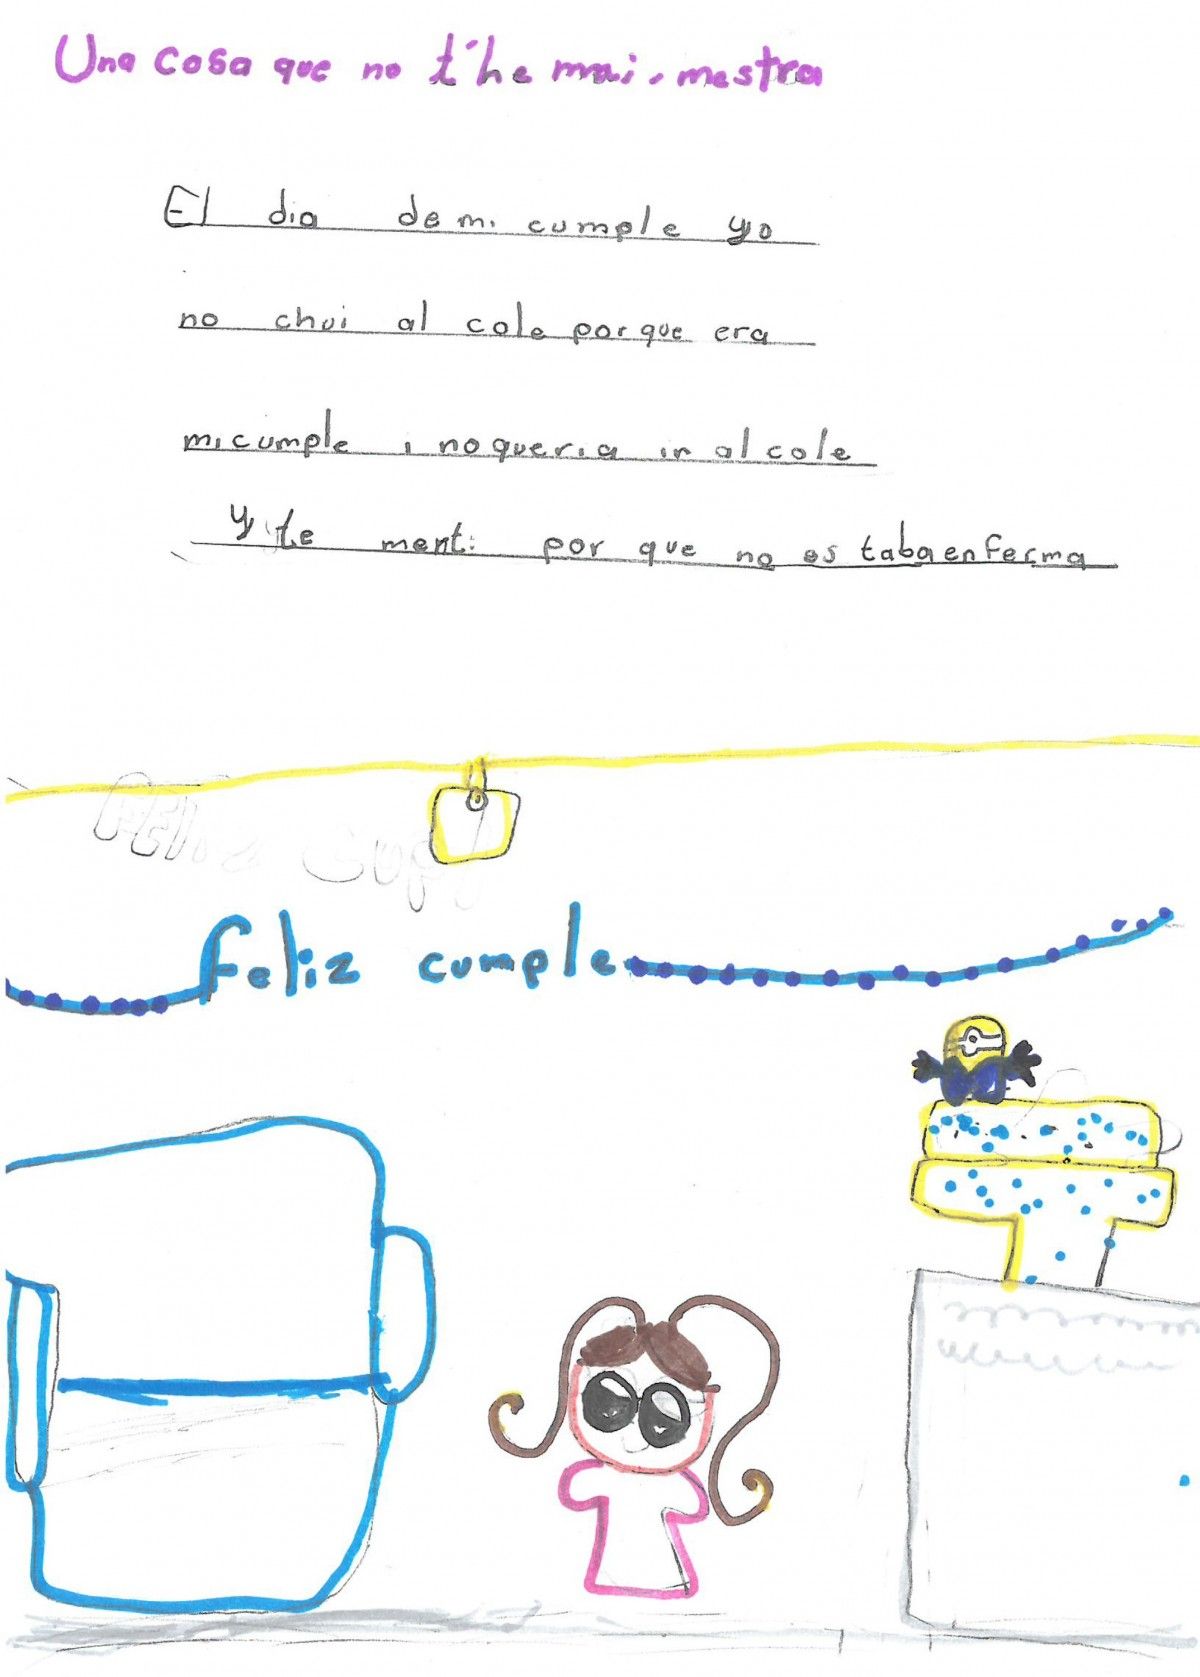 Una cosa que no t'he mai. mestra
El dia de mi cumple yo
no chui al cole por que era
mi cumple i no queria ir al cole
y te menti por que no es taba enferma
feliz cumple